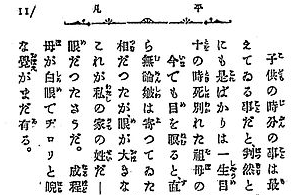 11/
平凡
子供の時分の事は最
えてゐる事だと判然と
にも是ばかりは一生目
十の時死別れた祖母の
今でも目を瞑ると直
ら無論皺は寄つてゐた
相だつたが眼が大きな
これが私の家の姓だ—
眼だつたさうだ。成程
母が白眼でヂロリと睨
な畳がまだ有る。